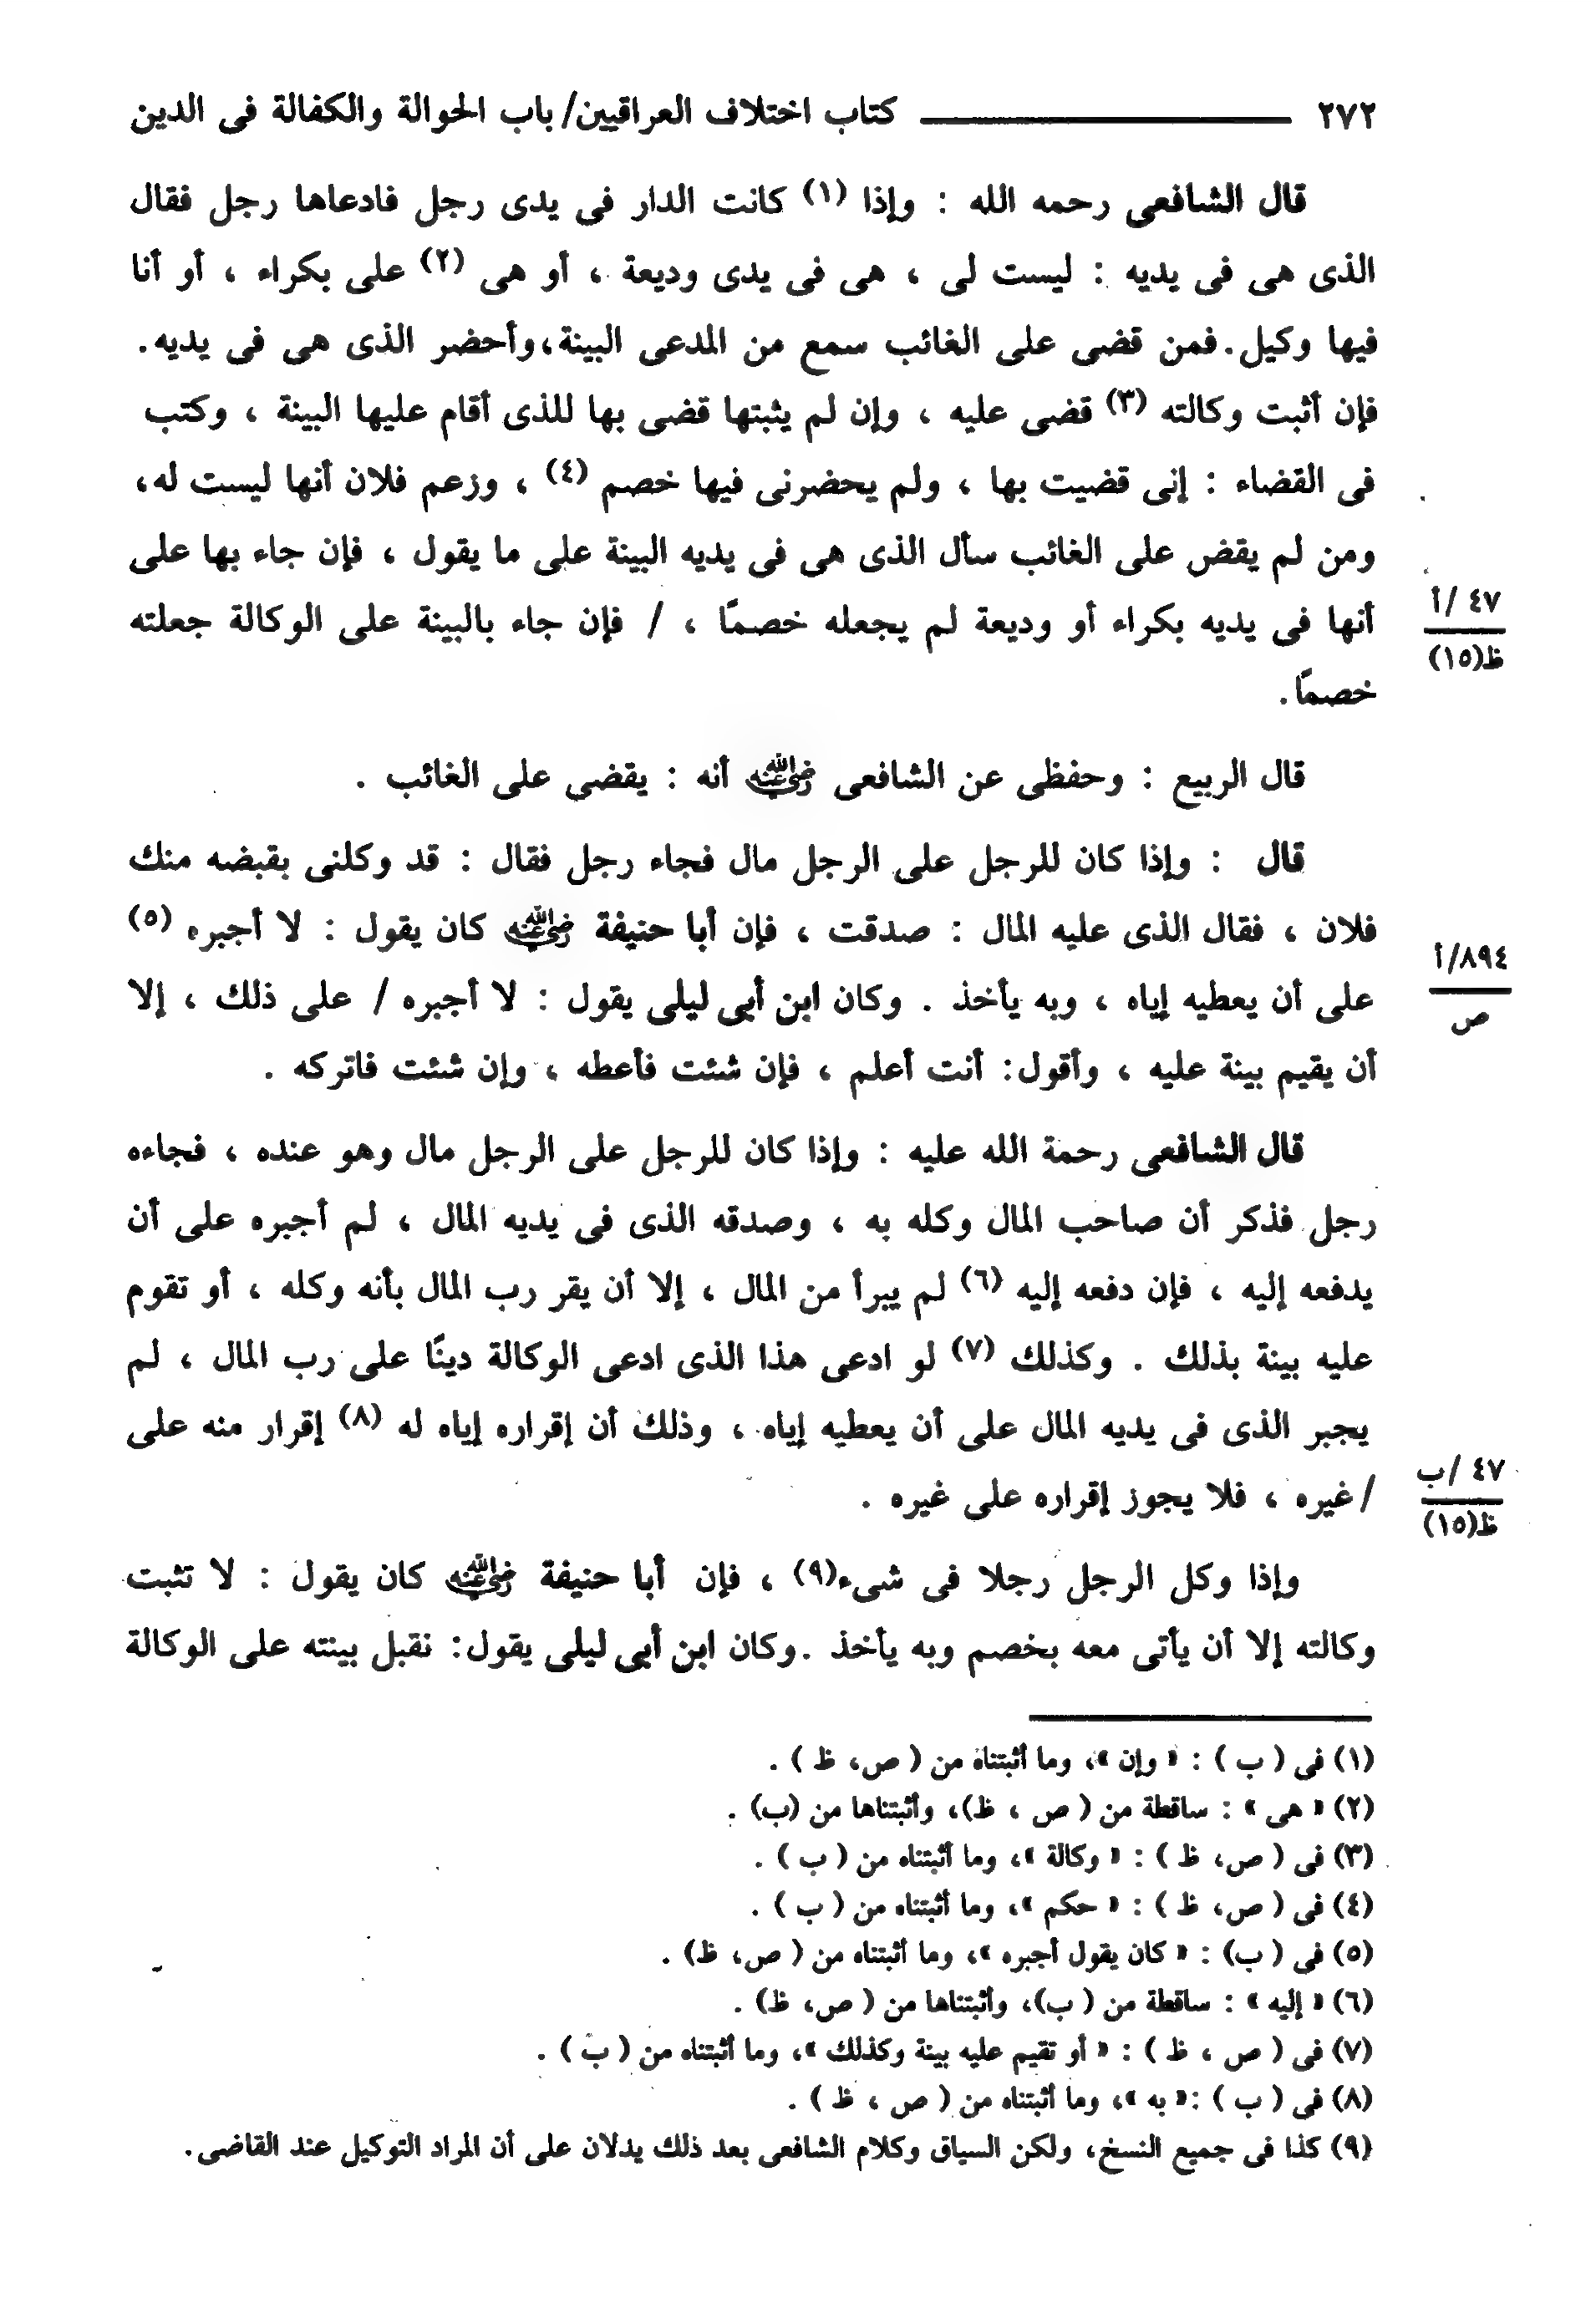 ٢٧٢ ــــــــــ كتاب اختلاف العراقيين/ باب الحوالة والكفالة فى الدين
قال الشافعى رحمه الله : وإذا (١) كانت الدار فى يدى رجل فادعاها رجل فقال
الذى هى فى يديه : ليست لى ، هى فى يدى وديعة ، أو هى (٢) على بكراء ، أو أنا
فيها وكيل . فمن قضى على الغائب سمع من المدعى البينة ،وأحضر الذى هى فى يديه .
فإن أثبت وكالته (٣) قضى عليه ، وإن لم يثبتها قضى بها للذى أقام عليها البينة ، وكتب
فى القضاء : إنى قضيت بها ، ولم يحضرنى فيها خصم (٤) ، وزعم فلان أنها ليست له،
ومن لم يقض على الغائب سأل الذى هى فى يديه البينة على ما يقول ، فإن جاء بها على
أنها فى يديه بكراء أو وديعة لم يجعله خصمًا ، / فإن جاء بالبينة على الوكالة جعلته
٤٧ /أ
ظ(١٥)
خصمًا .
قال الربيع : وحفظى عن الشافعى رضي الله عنه أنه : يقضى على الغائب .
قال : وإذا كان للرجل على الرجل مال فجاء رجل فقال : قد وكلنى بقبضه منك
فلان ، فقال الذى عليه المال : صدقت ، فإن أبا حنيفة رضي الله عنه كان يقول : لا أجبره (٥)
على أن يعطيه إياه ، وبه يأخذ . وكان ابن أبى ليلى يقول : لا أجبره / على ذلك ، إلا
٨٩٤/أ
ص
أن يقيم بينة عليه ، وأقول : أنت أعلم ، فإن شئت فأعطه ، وإن شئت فاتركه .
قال الشافعى رحمة الله عليه : وإذا كان للرجل على الرجل مال وهو عنده ، فجاءه
رجل فذكر أن صاحب المال وكله به ، وصدقه الذى فى يديه المال ، لم أجبره على أن
يدفعه إليه ، فإن دفعه إليه (٦) لم يبرأ من المال ، إلا أن يقر رب المال بأنه وكله ، أو تقوم
عليه بينة بذلك . وكذلك (٧) لو ادعى هذا الذى ادعى الوكالة دينًا على رب المال ، لم
يجبر الذى فى يديه المال على أن يعطيه إياه ، وذلك أن إقراره إياه له (٨) إقرار منه على
/ غيره ، فلا يجوز إقراره على غيره .
٤٧ /ب
ظ(١٥)
وإذا وكل الرجل رجلا فى شىء(٩) ، فإن أبا حنيفة رضي الله عنه كان يقول : لا تثبت
وكالته إلا أن يأتى معه بخصم وبه يأخذ .وكان ابن أبى ليلى يقول: نقبل بينته على الوكالة
(١) فى ( ب ) : « وإن »، وما أثبتناه من ( ص، ظ ) .
(٢) « هى » : ساقطة من ( ص ، ظ)، وأثبتناها من (ب) .
(٣) فى ( ص، ظ ) : « وكالة »، وما أثبتناه من ( ب ) .
(٤) فى ( ص، ظ ) : « حكم »، وما أثبتناه من ( ب ) .
(٥) فى ( ب) : « كان يقول أجبره »، وما أثبتناه من ( ص، ظ) .
(٦) « إليه » : ساقطة من ( ب)، وأثبتناها من ( ص، ظ) .
(٧) فى ( ص ، ظ ) : « أو تقيم عليه بينة وكذلك »، وما أثبتناه من ( ب ) .
(٨) فى ( ب ) :« به »، وما أثبتناه من ( ص ، ظ ) .
(٩) كذا فى جميع النسخ، ولكن السياق وكلام الشافعى بعد ذلك يدلان على أن المراد التوكيل عند القاضى .